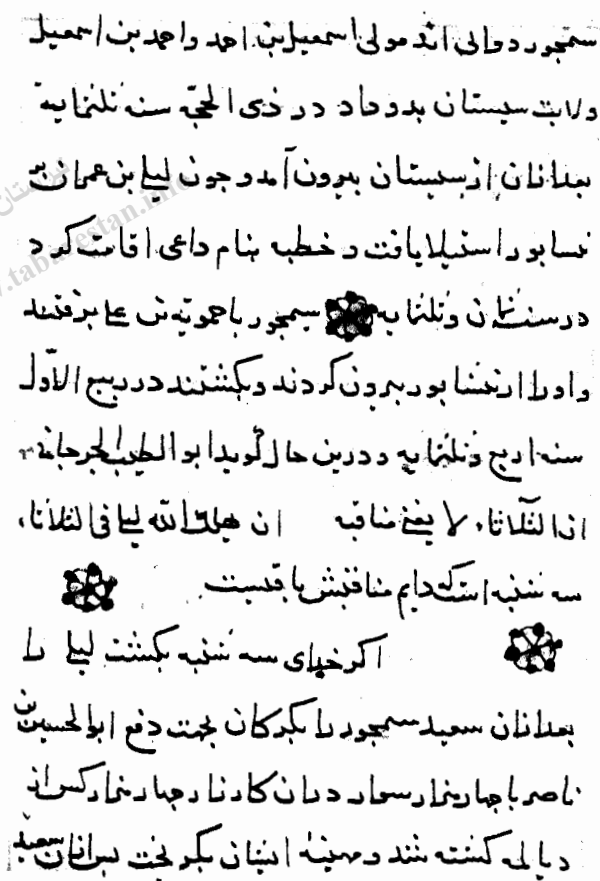 سیمجور دوالی اند مولی اسمعیل بن احمد و احمد بن اسمعیل
ولایت سیستان بدو داد در ذی الحجّه سنه ثلثمایه
بعد از ان از سیستان بیرون آمد و چون لیلی بن عمران بر
نیسابور استیلا یافت و خطبه بنام داعی اقامت کرد
در سنه ثمان و ثلثمایه سیمجور با حمویه بن علی برفتند
و او را از نیشابور بیرون کردند و بکشتند در ربیع الاوّل
سنه اربع و ثلثمایه و درین حال گوید ابو الطیب الجرجانی
اذا الثلاثاء لا یفنی مناقبه ان هلک الله لیلی فی الثلاثاء
سه شنبه است که دایم مناقبش باقیست
اگر خدای سه شنبه بکشت لیلی را
بعد از ان سعید سیمجور را بگرگان بجهت دفع ابوالحسین بن
ناصر با چهار هزار سوار در ان کارزار چهار هزار کس از
دیالمه کشته شد و هزیمة ایشان بگریخت پس از ان سعید